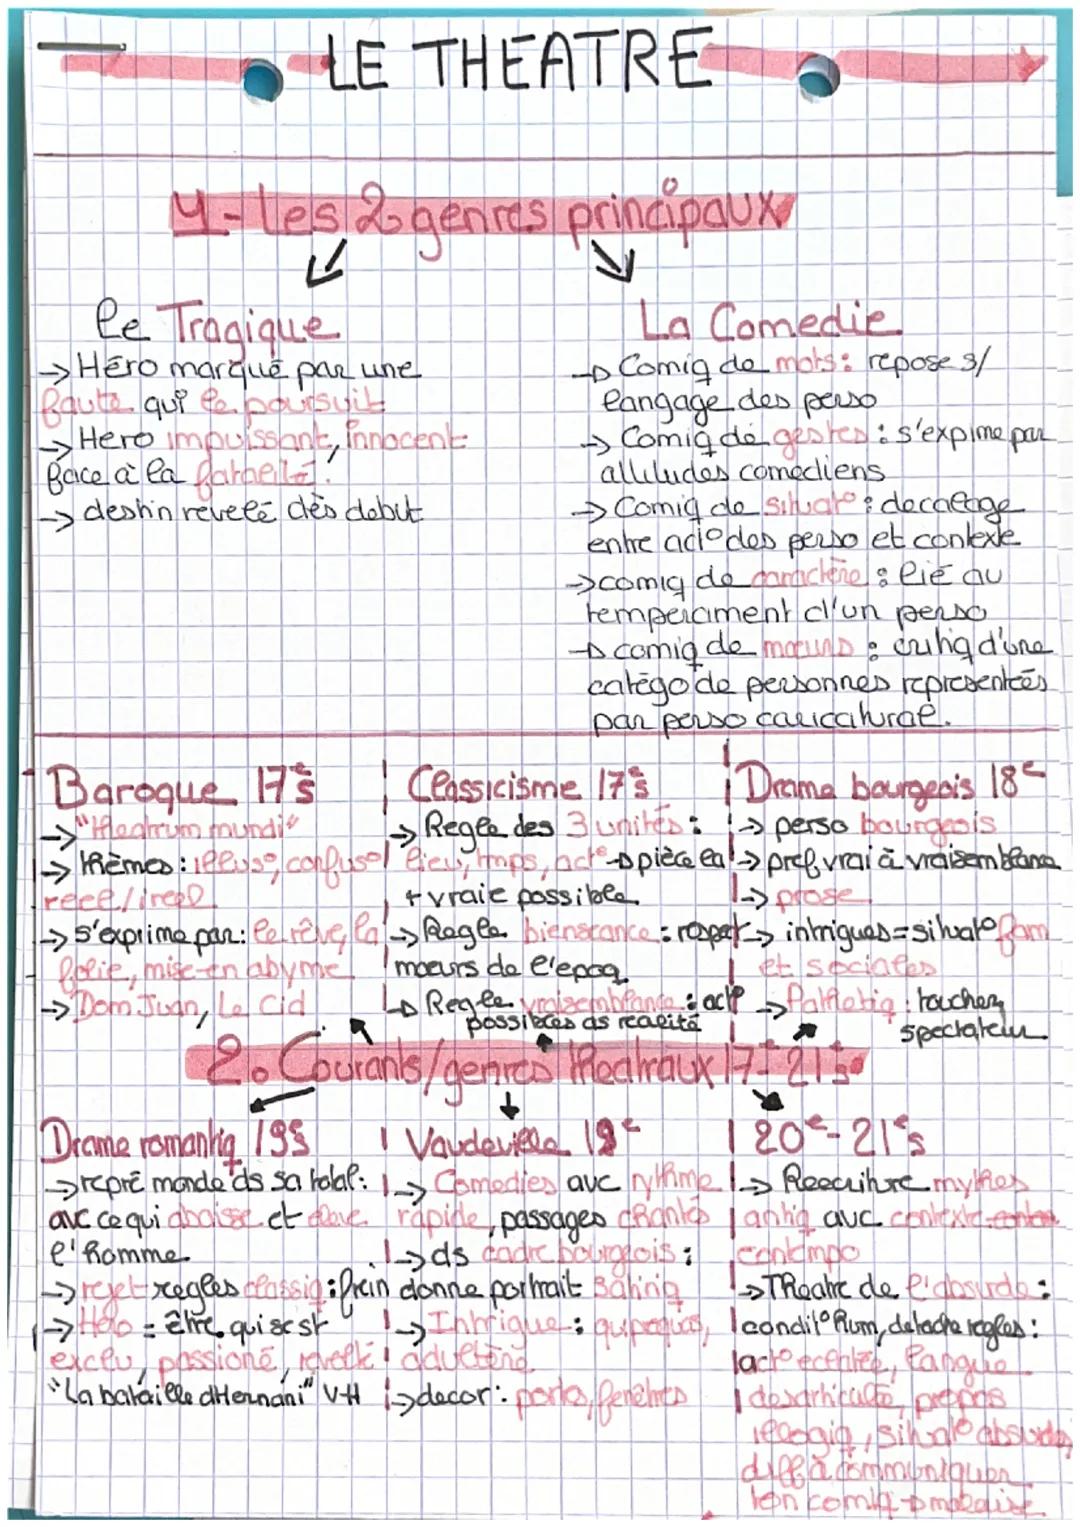 LE THEATRE
1-Les 2 genres principaux
Le Tragique
→ Héro marqué par une
faute qui le poursuit
→ Hero impuissant, innocent
face à la fatalité!
→ destin revelé dès debut
La Comedie
→ Comiq de mots: repose s/
langage des perso
→ Comiq de gestes: s'expime par
attitudes comediens
→ Comiq de situat°: decalage
entre act° des perso et contexte
→ comiq de caractère: lié au
temperament d'un perso
→ comiq de mœurs: critiq d'une
catégo de personnes representées
par perso caricatural.
Baroque 17es
→ "theatrum mundi"
→ thèmes: illus°, confus°
reel/ireel
→ s'exprime par: le rêve, la
folie, mise en abyme
→ Dom Juan, Le Cid
Classicisme 17es
→ Regle des 3 unités:
lieu, tmps, act° → pièce la
+ vraie possible
→ Regle bienseance: respet
mœurs de l'epoq
→ Regle vraisemblance: act°
possibles ds realité
Drame bourgeois 18e
→ perso bourgeois
→ pref vrai à vraisemblance
→ prose
→ intrigues = situat° fam
et sociales
→ Pathetiq: toucher
spectateur
2. Courants/genres theatraux 17-21es
Drame romantiq 19es
→ repré monde ds sa total:
avc ce qui abaisse et eleve
l'homme
→ rejet regles classiq: frein
→ Hero = être qui se st
exclu, passioné, revolté
"La bataille d'Hernani" VH
Vaudeville 19e
→ Comedies avc rythme
rapide, passages chantés
→ ds cadre bourgeois:
donne portrait satiriq
→ Intrigue: quipoquos,
adultère
→ decor: portes, fenêtres
20e-21es
→ Reecriture mythes
antiq avc contexte
contempo
→ Theatre de l'absurde:
condit° hum, detache regles:
act° eclatée, langue
desarticulée, propos
illogiq, situat° absurdes,
diff à communiquer
ton comiq → malaise